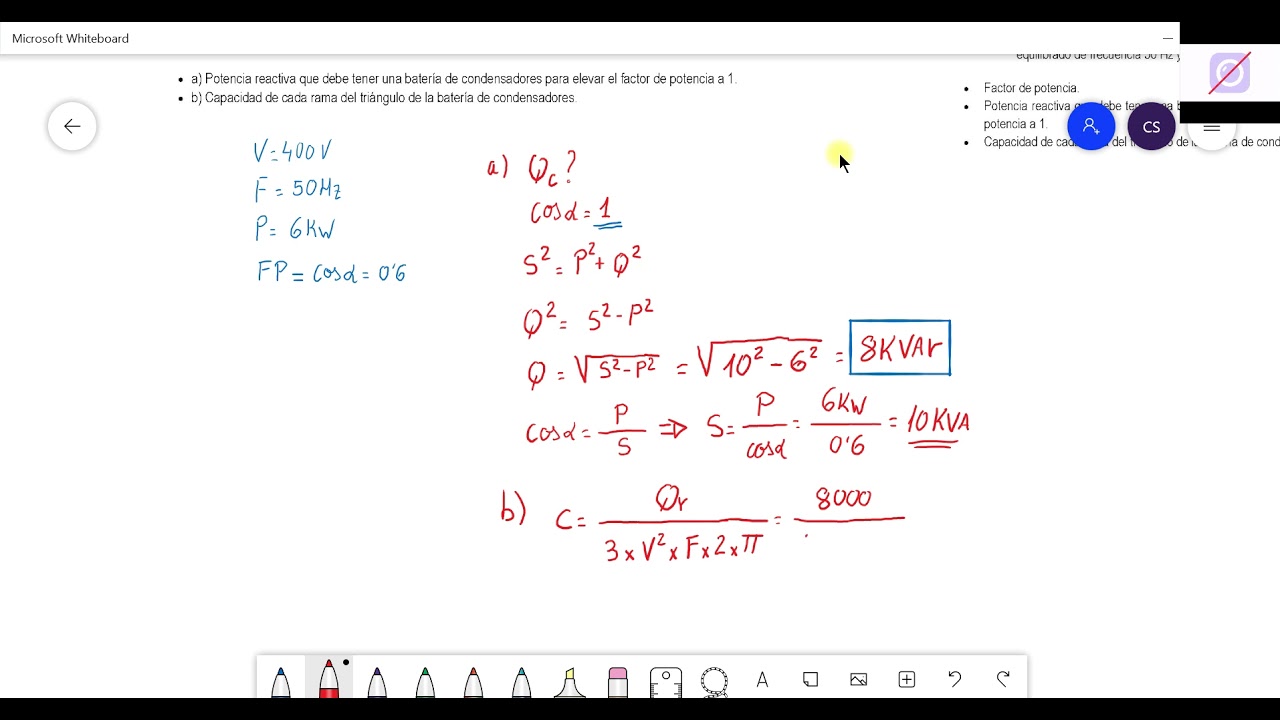 Microsoft Whiteboard
equilibrado de frecuencia 50 Hz y
• a) Potencia reactiva que debe tener una batería de condensadores para elevar el factor de potencia a 1.
• b) Capacidad de cada rama del triángulo de la batería de condensadores.
• Factor de potencia.
• Potencia reactiva que debe
potencia a 1.
• Capacidad de del de cond
CS
V=400V
F=50Hz
P=6KW
FP=cosα=0'6
a) Qc?
cosα=1
S²=P²+Q²
Q²=S²-P²
Q=√S²-P² = √10²-6² = 8KVAr
cosα=P/S ⇒ S=P/cosα=6KW/0'6=10KVA
b) C=Qr/3xV²xFx2xπ=8000
A